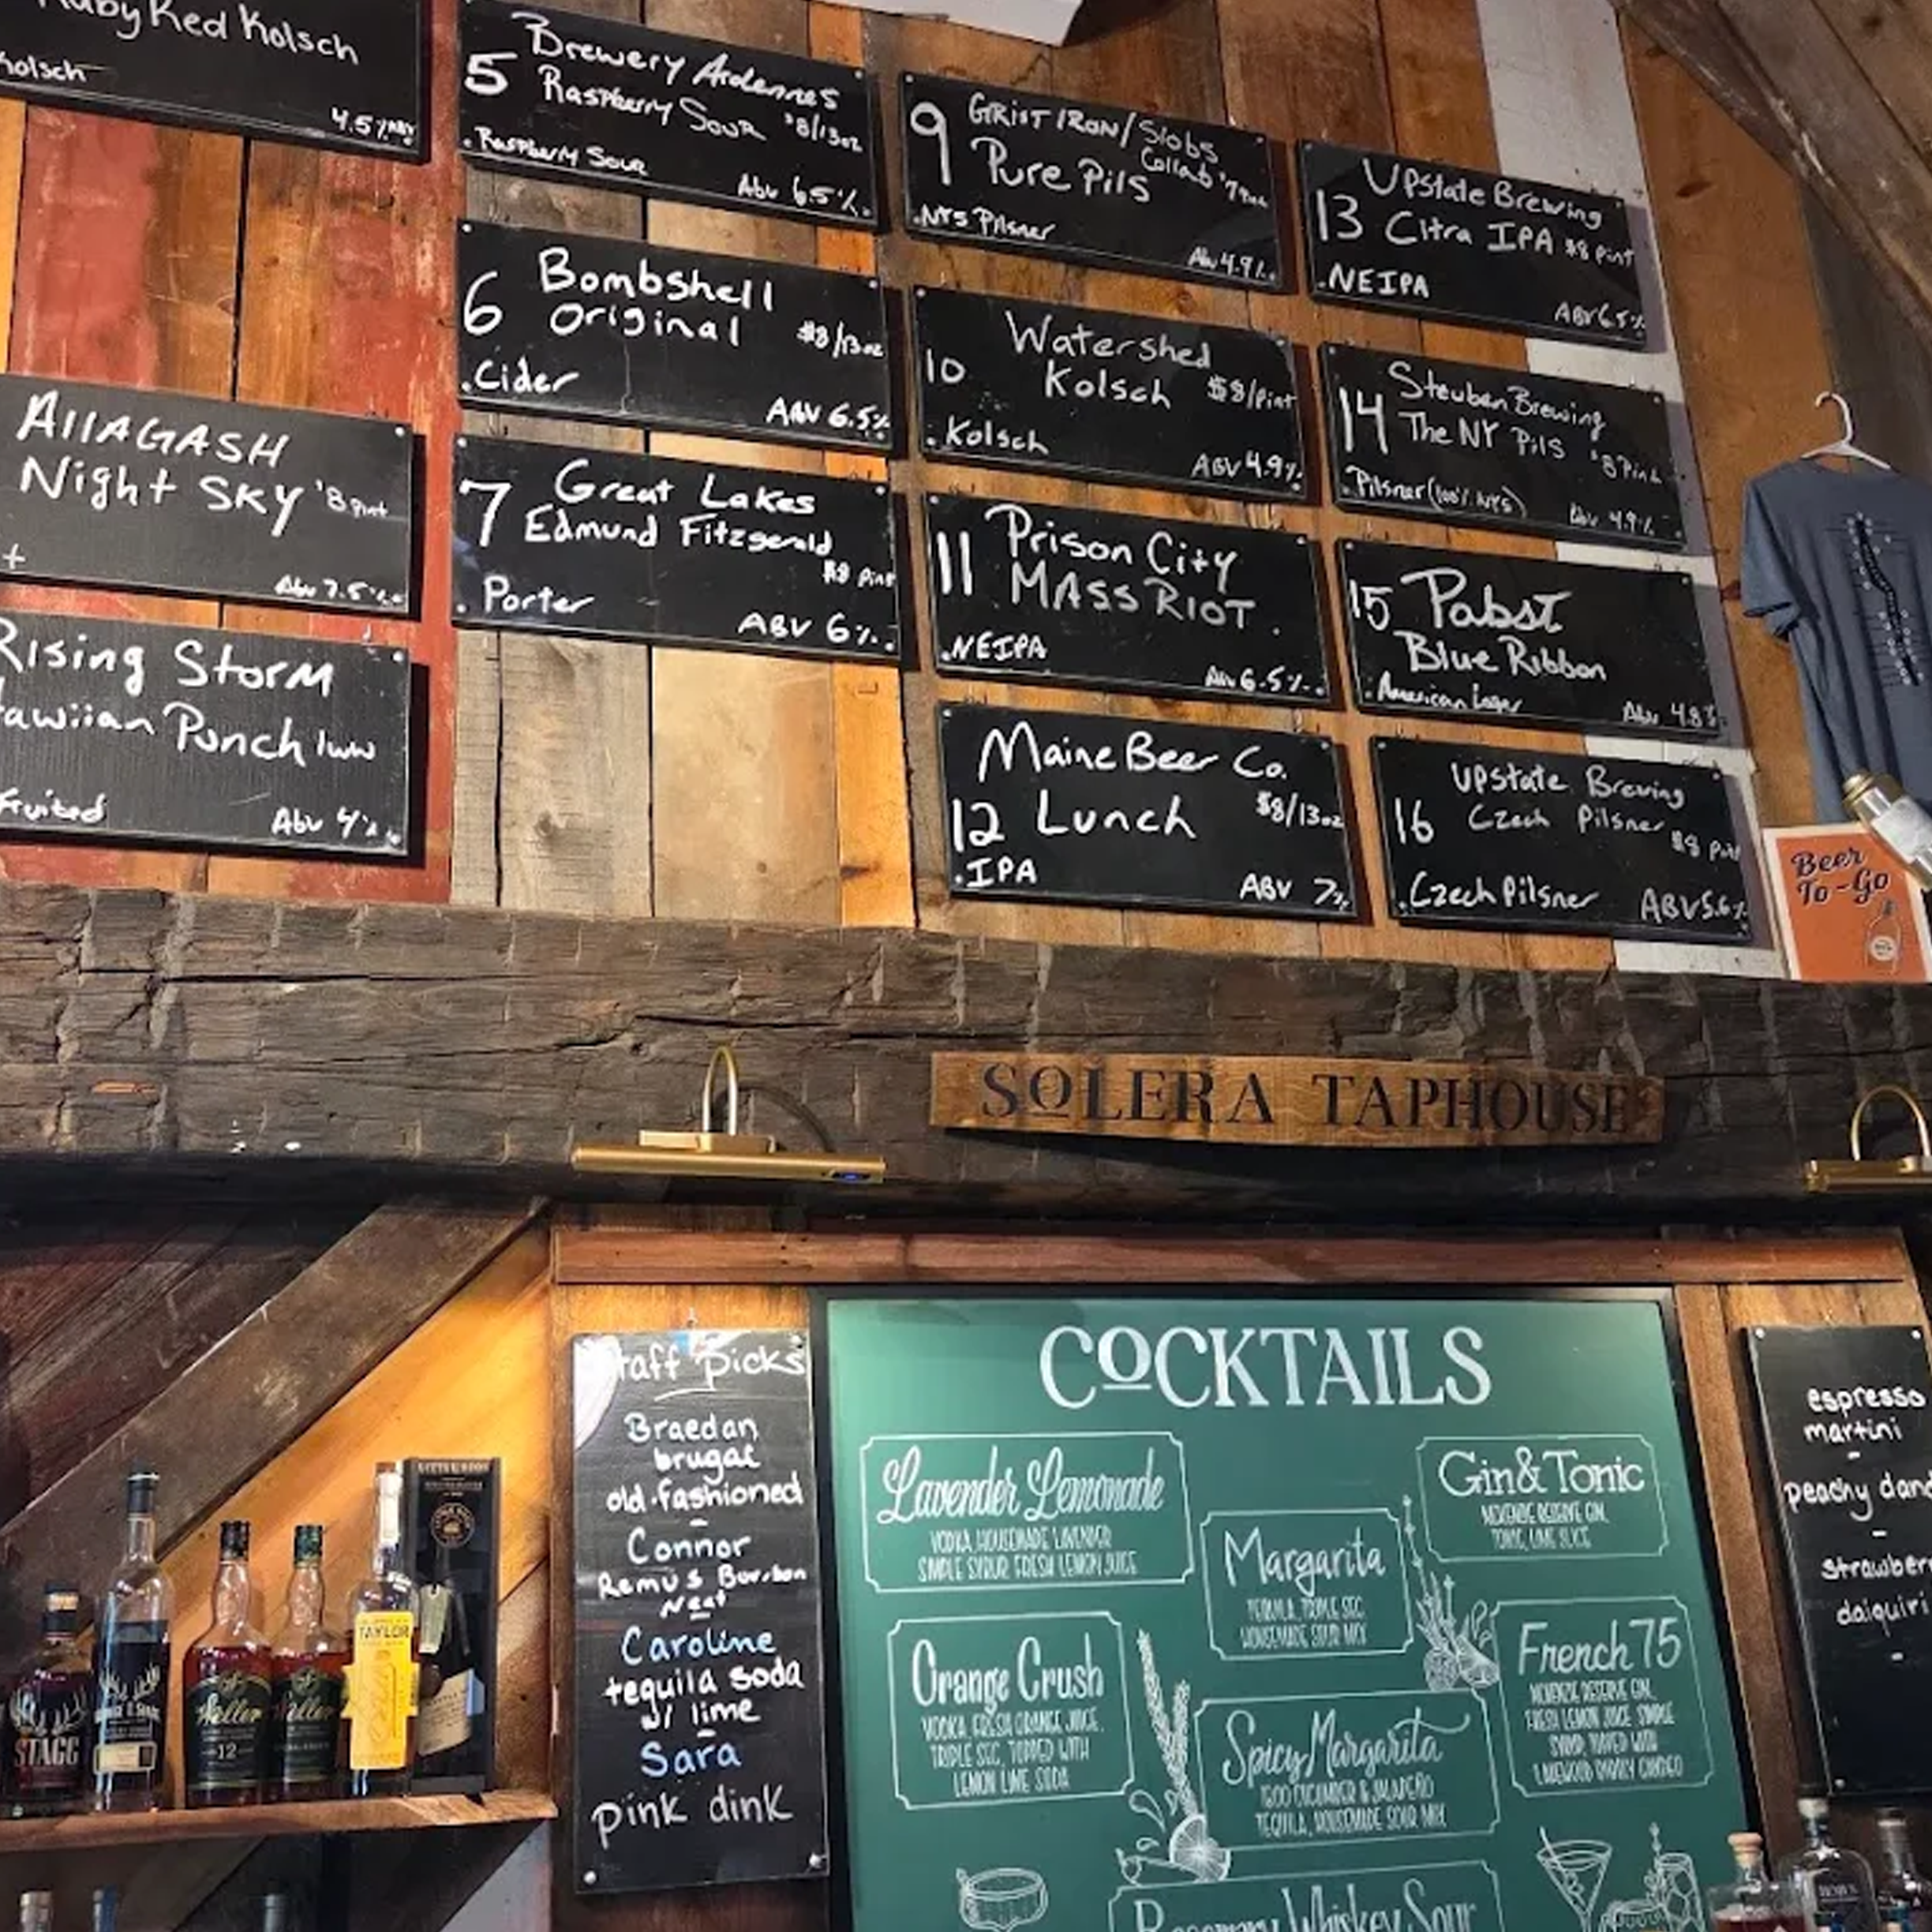 Ruby Red Kolsch
Kolsch
4.5% ABV
AllAGASH
Night SKY $8 pint
+
Abv 7.5%
Rising Storm
Hawiian Punch
Fruited
Abv 4%
Brewery Ardennes
5 Raspberry Sour $8/13oz
.Raspberry Sour
Abv 6.5%.
6 Bombshell
Original $8/13oz
.Cider
ABV 6.5%
7 Great Lakes
Edmund Fitzgerald
$8 pint
.Porter
ABV 6%.
9 GRIST IRON/Slobs
Collab
Pure Pils
.NYS Pilsner
Abv 4.9%.
Watershed
10 Kolsch $8/pint
.Kolsch
ABV 4.9%
11 Prison City
MASS RIOT.
.NEIPA
Abv 6.5%.
Maine Beer Co.
12 Lunch $8/13oz
.IPA
ABV 7%
Upstate Brewing
13 Citra IPA $8 pint
.NEIPA
ABV 6.5%
Steuben Brewing
14 The NY Pils $8 Pint
.Pilsner (100% NYS)
Abv 4.9%
15 Pabst
Blue Ribbon
.American Lager
Abv 4.8%
Upstate Brewing
16 Czech Pilsner
$8 pint
.Czech Pilsner
ABV 5.6%
Beer
To-Go
SOLERA TAPHOUSE
Staff Picks
Braedan
brugal
old-fashioned
-
Connor
Remus Bourbon
Neat
-
Caroline
tequila soda
w/ lime
-
Sara
pink dink
COCKTAILS
Lavender Lemonade
VODKA, HOUSEMADE LAVENDER
SIMPLE SYRUP, FRESH LEMON JUICE
Gin & Tonic
MCKENZIE RESERVE GIN,
TONIC, LIME SLICE
Margarita
TEQUILA, TRIPLE SEC,
HOUSEMADE SOUR MIX
Orange Crush
VODKA, FRESH ORANGE JUICE,
TRIPLE SEC, TOPPED WITH
LEMON LIME SODA
French 75
MCKENZIE RESERVE GIN,
FRESH LEMON JUICE, SIMPLE
SYRUP, TOPPED WITH
Spicy Margarita
1800 CUCUMBER & JALAPEÑO
TEQUILA, HOUSEMADE SOUR MIX
Rosemary Whiskey Sour
espresso
martini
-
peachy dand
-
strawber
daiquiri
-
STAGG
Weller
12
Weller
TAYLOR